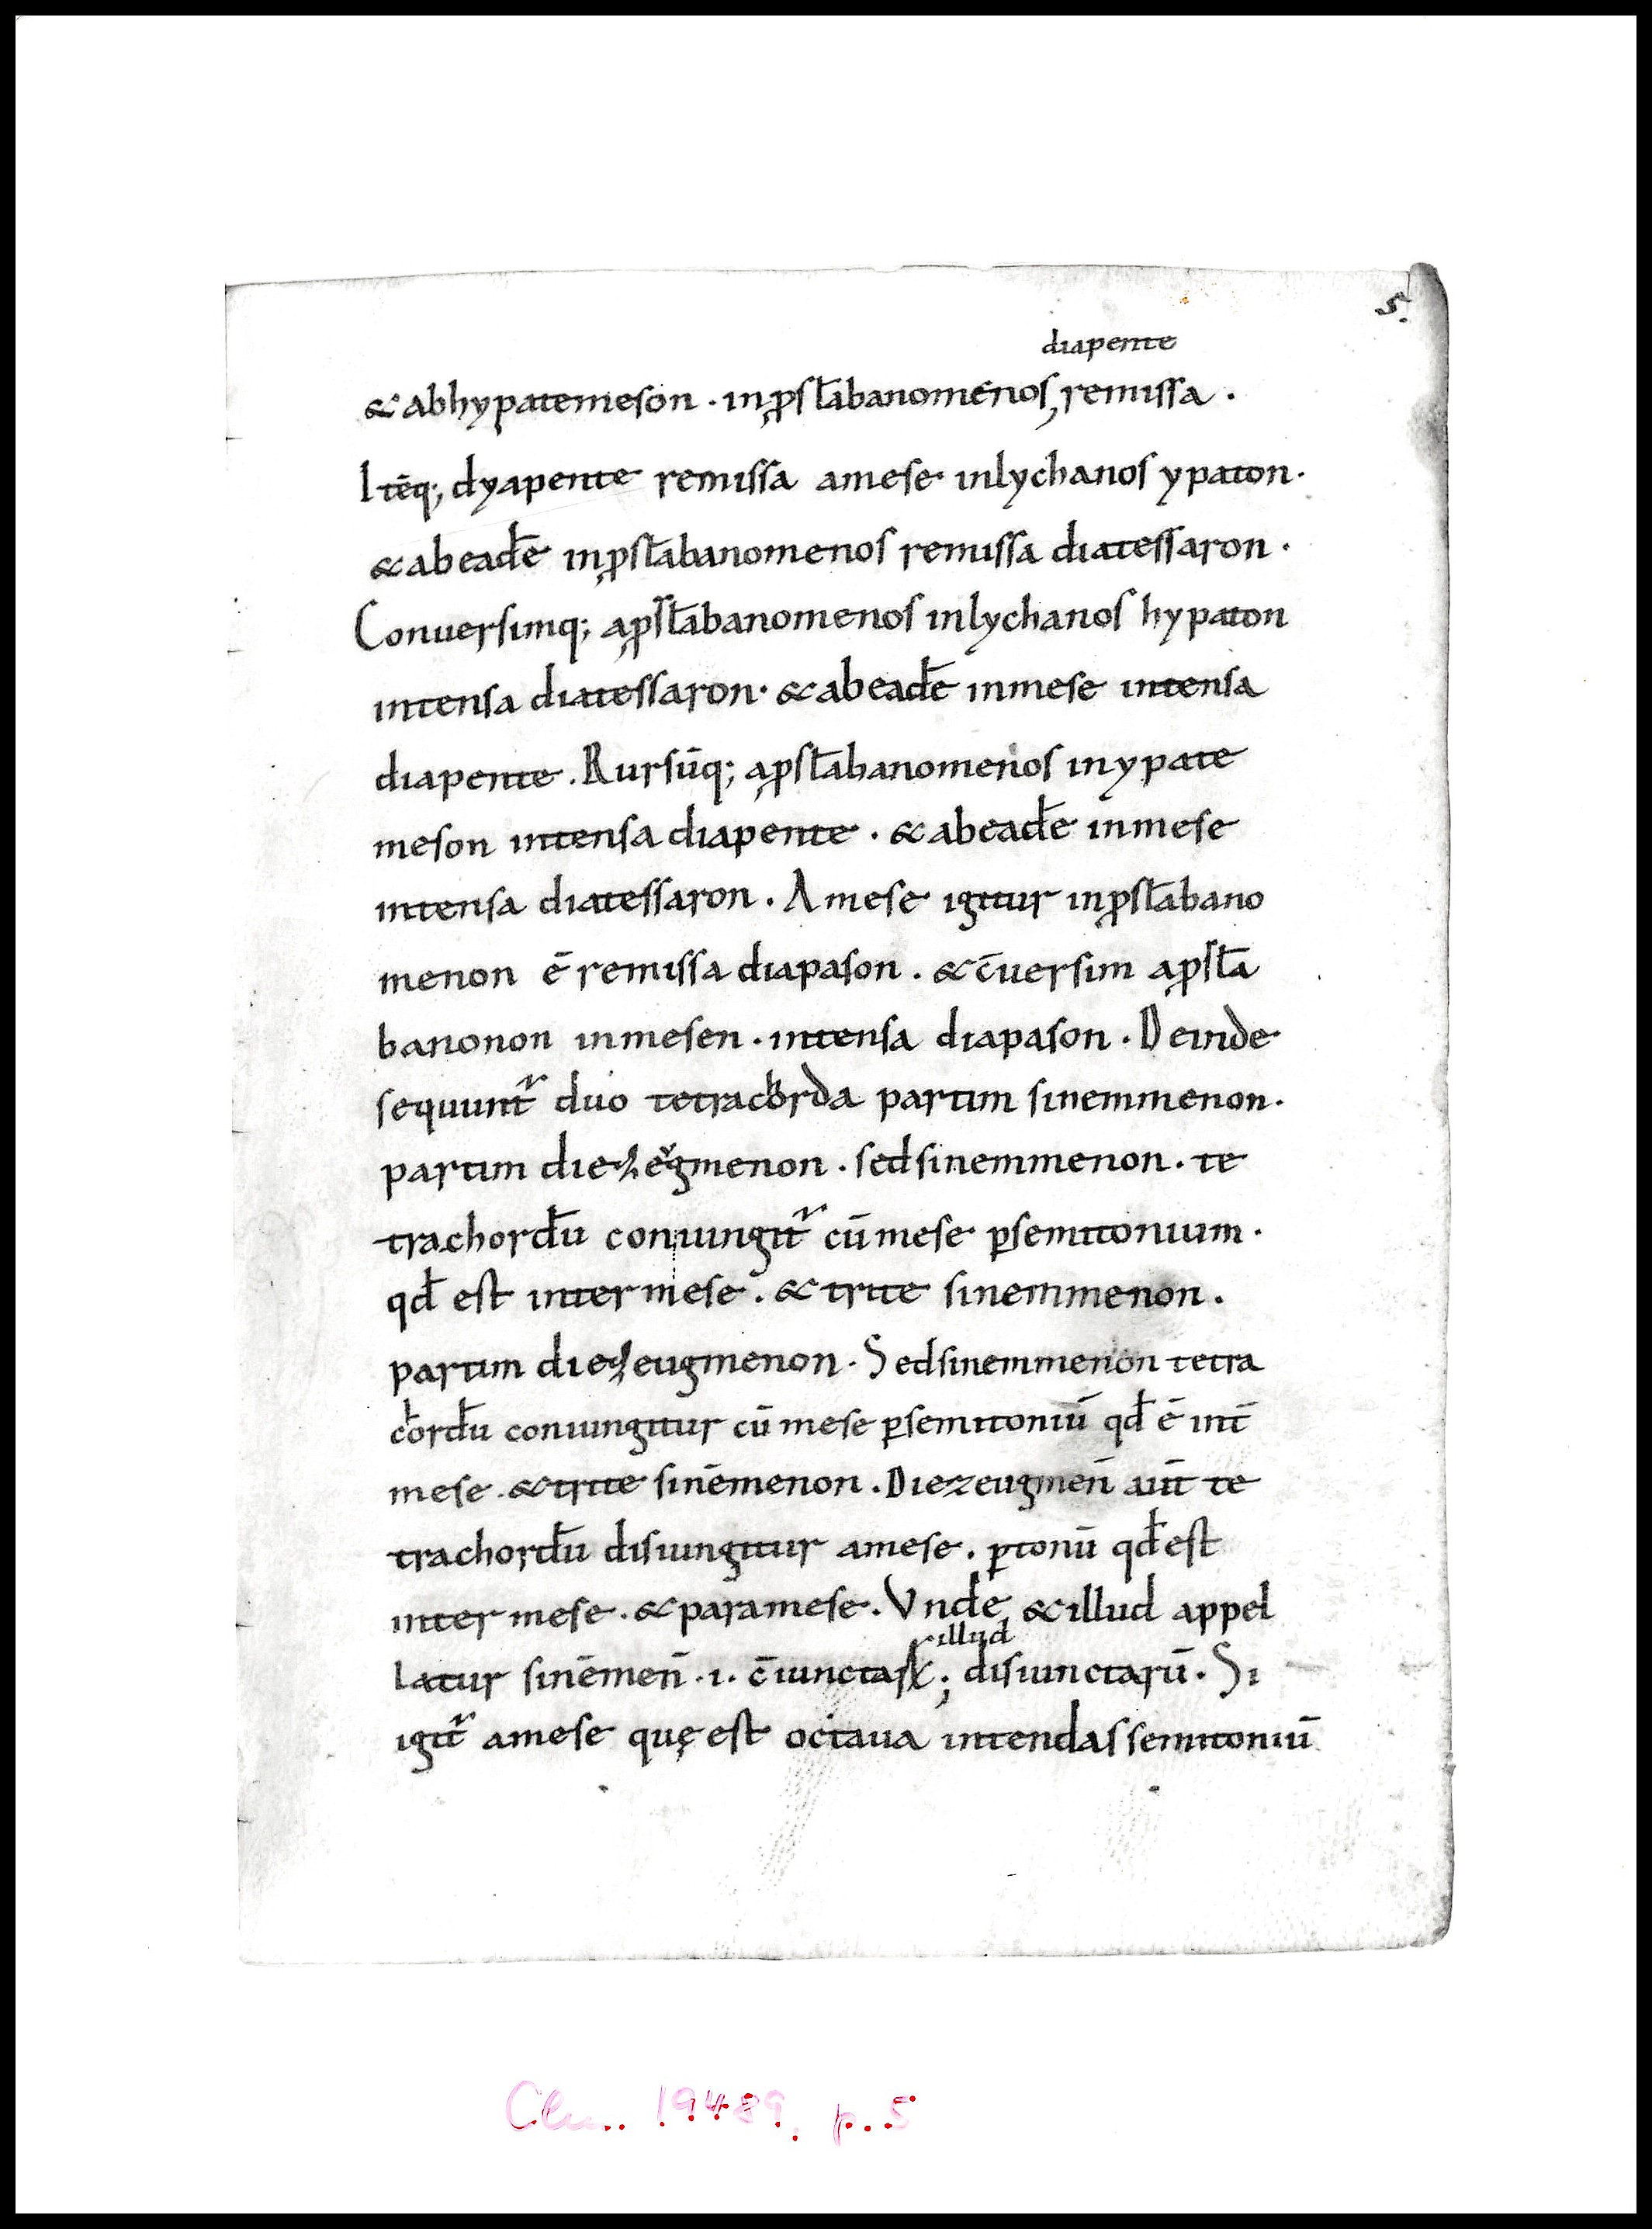 5.
diapente
& abhypatemeson · inp̱sl̄abanomenos, remissa ·
Itēq; dyapente remissa amese inlychanos ypaton ·
& abead̄e inp̱sl̄abanomenos remissa diatessaron ·
Conuersimq; ap̱sl̄abanomenos inlychanos hypaton
intensa diatessaron · & abead̄e inmese intensa
diapente . Rursūq; ap̱sl̄abanomenos inypate
meson intensa diapente · & abead̄e inmese
intensa diatessaron . Amese igitur inp̱sl̄abano
menon ē remissa diapason . & c̄uersim ap̱sl̄a
banonon inmesen · intensa diapason . Deinde
sequunt᷑ duo tetrachorda partim sinemmenon ·
partim diezeᵛgmenon . sedsinemmenon · te
trachord̄u coniungit᷑ cūmese ꝑsemitonium ·
qd̄ est inter mese . & trite sinemmenon .
partim diezeugmenon · Sedsinemmenon tetra
chord̄u coniungitur cū mese ꝑsemitoniū qd̄ ē int̄
mese . & trite sinēmenon . Diezeugmen̄ aūt te
trachord̄u disiungitur amese . ꝑtonū qd̄ est
inter mese . & paramese . Vnde, & illud appel
illud
latur sinēmen̄ · i · c̄iunctaꝝ ; disiunctarū . Si
igit᷑ amese quę est octaua intendas semitoniū
Clm. 19489. p. 5